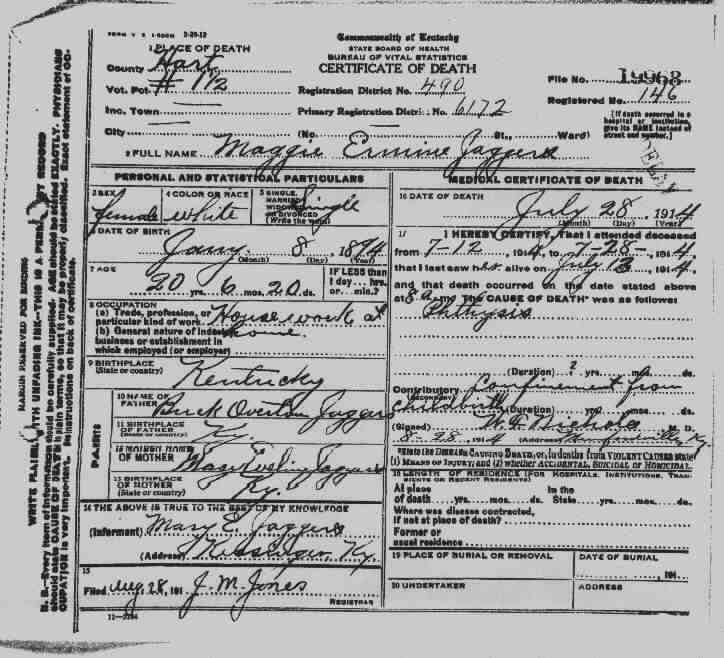 FORM V S 1-100M 3-20-12
Commonwealth of Kentucky
STATE BOARD OF HEALTH
BUREAU OF VITAL STATISTICS
CERTIFICATE OF DEATH
1 PLACE OF DEATH
County Hart
Vot. Pct. # 112
Registration District No. 490
File No. 19968
Inc. Town
Primary Registration District No. 6172
Registered No. 146
City (No. St., Ward)
[If death occurred in a hospital or institution, give its NAME instead of street and number.]
2 FULL NAME Maggie Ermine Jaggers
PERSONAL AND STATISTICAL PARTICULARS
3 SEX female
4 COLOR OR RACE white
5 SINGLE, MARRIED, WIDOWED OR DIVORCED (Write the word) Single
6 DATE OF BIRTH
Jany. 8, 1894
(Month) (Day) (Year)
7 AGE
20 yrs. 6 mos. 20 ds.
IF LESS than 1 day... hrs. or... min.?
8 OCCUPATION
(a) Trade, profession, or particular kind of work House work at
(b) General nature of industry, business or establishment in which employed (or employer) home.
9 BIRTHPLACE
(State or country) Kentucky
PARENTS
10 NAME OF FATHER Buck Overton Jaggers
11 BIRTHPLACE OF FATHER (State or country) Ky.
12 MAIDEN NAME OF MOTHER Mary Jaggers
13 BIRTHPLACE OF MOTHER (State or country) Ky.
14 THE ABOVE IS TRUE TO THE BEST OF MY KNOWLEDGE
(Informant) Mary E. Jaggers
(Address) Kessinger, Ky.
15
Filed Aug. 28, 191 J. M. Jones
REGISTRAR
MEDICAL CERTIFICATE OF DEATH
16 DATE OF DEATH
July 28, 1914
(Month) (Day) (Year)
17 I HEREBY CERTIFY, That I attended deceased
from 7-12, 1914, to 7-28-, 1914
that I last saw her alive on July 13, 1914,
and that death occurred on the date stated above
at 8 a. m. The CAUSE OF DEATH* was as follows:
Phthysis
(Duration) 2 yrs. mos. ds.
Contributory Confinement from
(SECONDARY)
childbirth (Duration) yrs. mos. ds.
(Signed) Nichols M. D.
8-28, 1914 (Address) Munfordville Ky.
*State the DISEASE CAUSING DEATH, or, in deaths from VIOLENT CAUSES state
(1) MEANS OF INJURY; and (2) whether ACCIDENTAL, SUICIDAL or HOMICIDAL.
18 LENGTH OF RESIDENCE (FOR HOSPITALS, INSTITUTIONS, TRANSIENTS OR RECENT RESIDENTS)
At place of death yrs. mos. ds. In the State yrs. mos. ds.
Where was disease contracted,
if not at place of death?
Former or
usual residence
19 PLACE OF BURIAL OR REMOVAL
DATE OF BURIAL
, 191
20 UNDERTAKER
ADDRESS
MARGIN RESERVED FOR BINDING
WRITE PLAINLY WITH UNFADING INK—THIS IS A PERMANENT RECORD
N. B.—Every item of information should be carefully supplied. AGE should be stated EXACTLY. PHYSICIANS
should state CAUSE OF DEATH in plain terms, so that it may be properly classified. Exact statement of OC-
CUPATION is very important. Instructions on back of certificate.